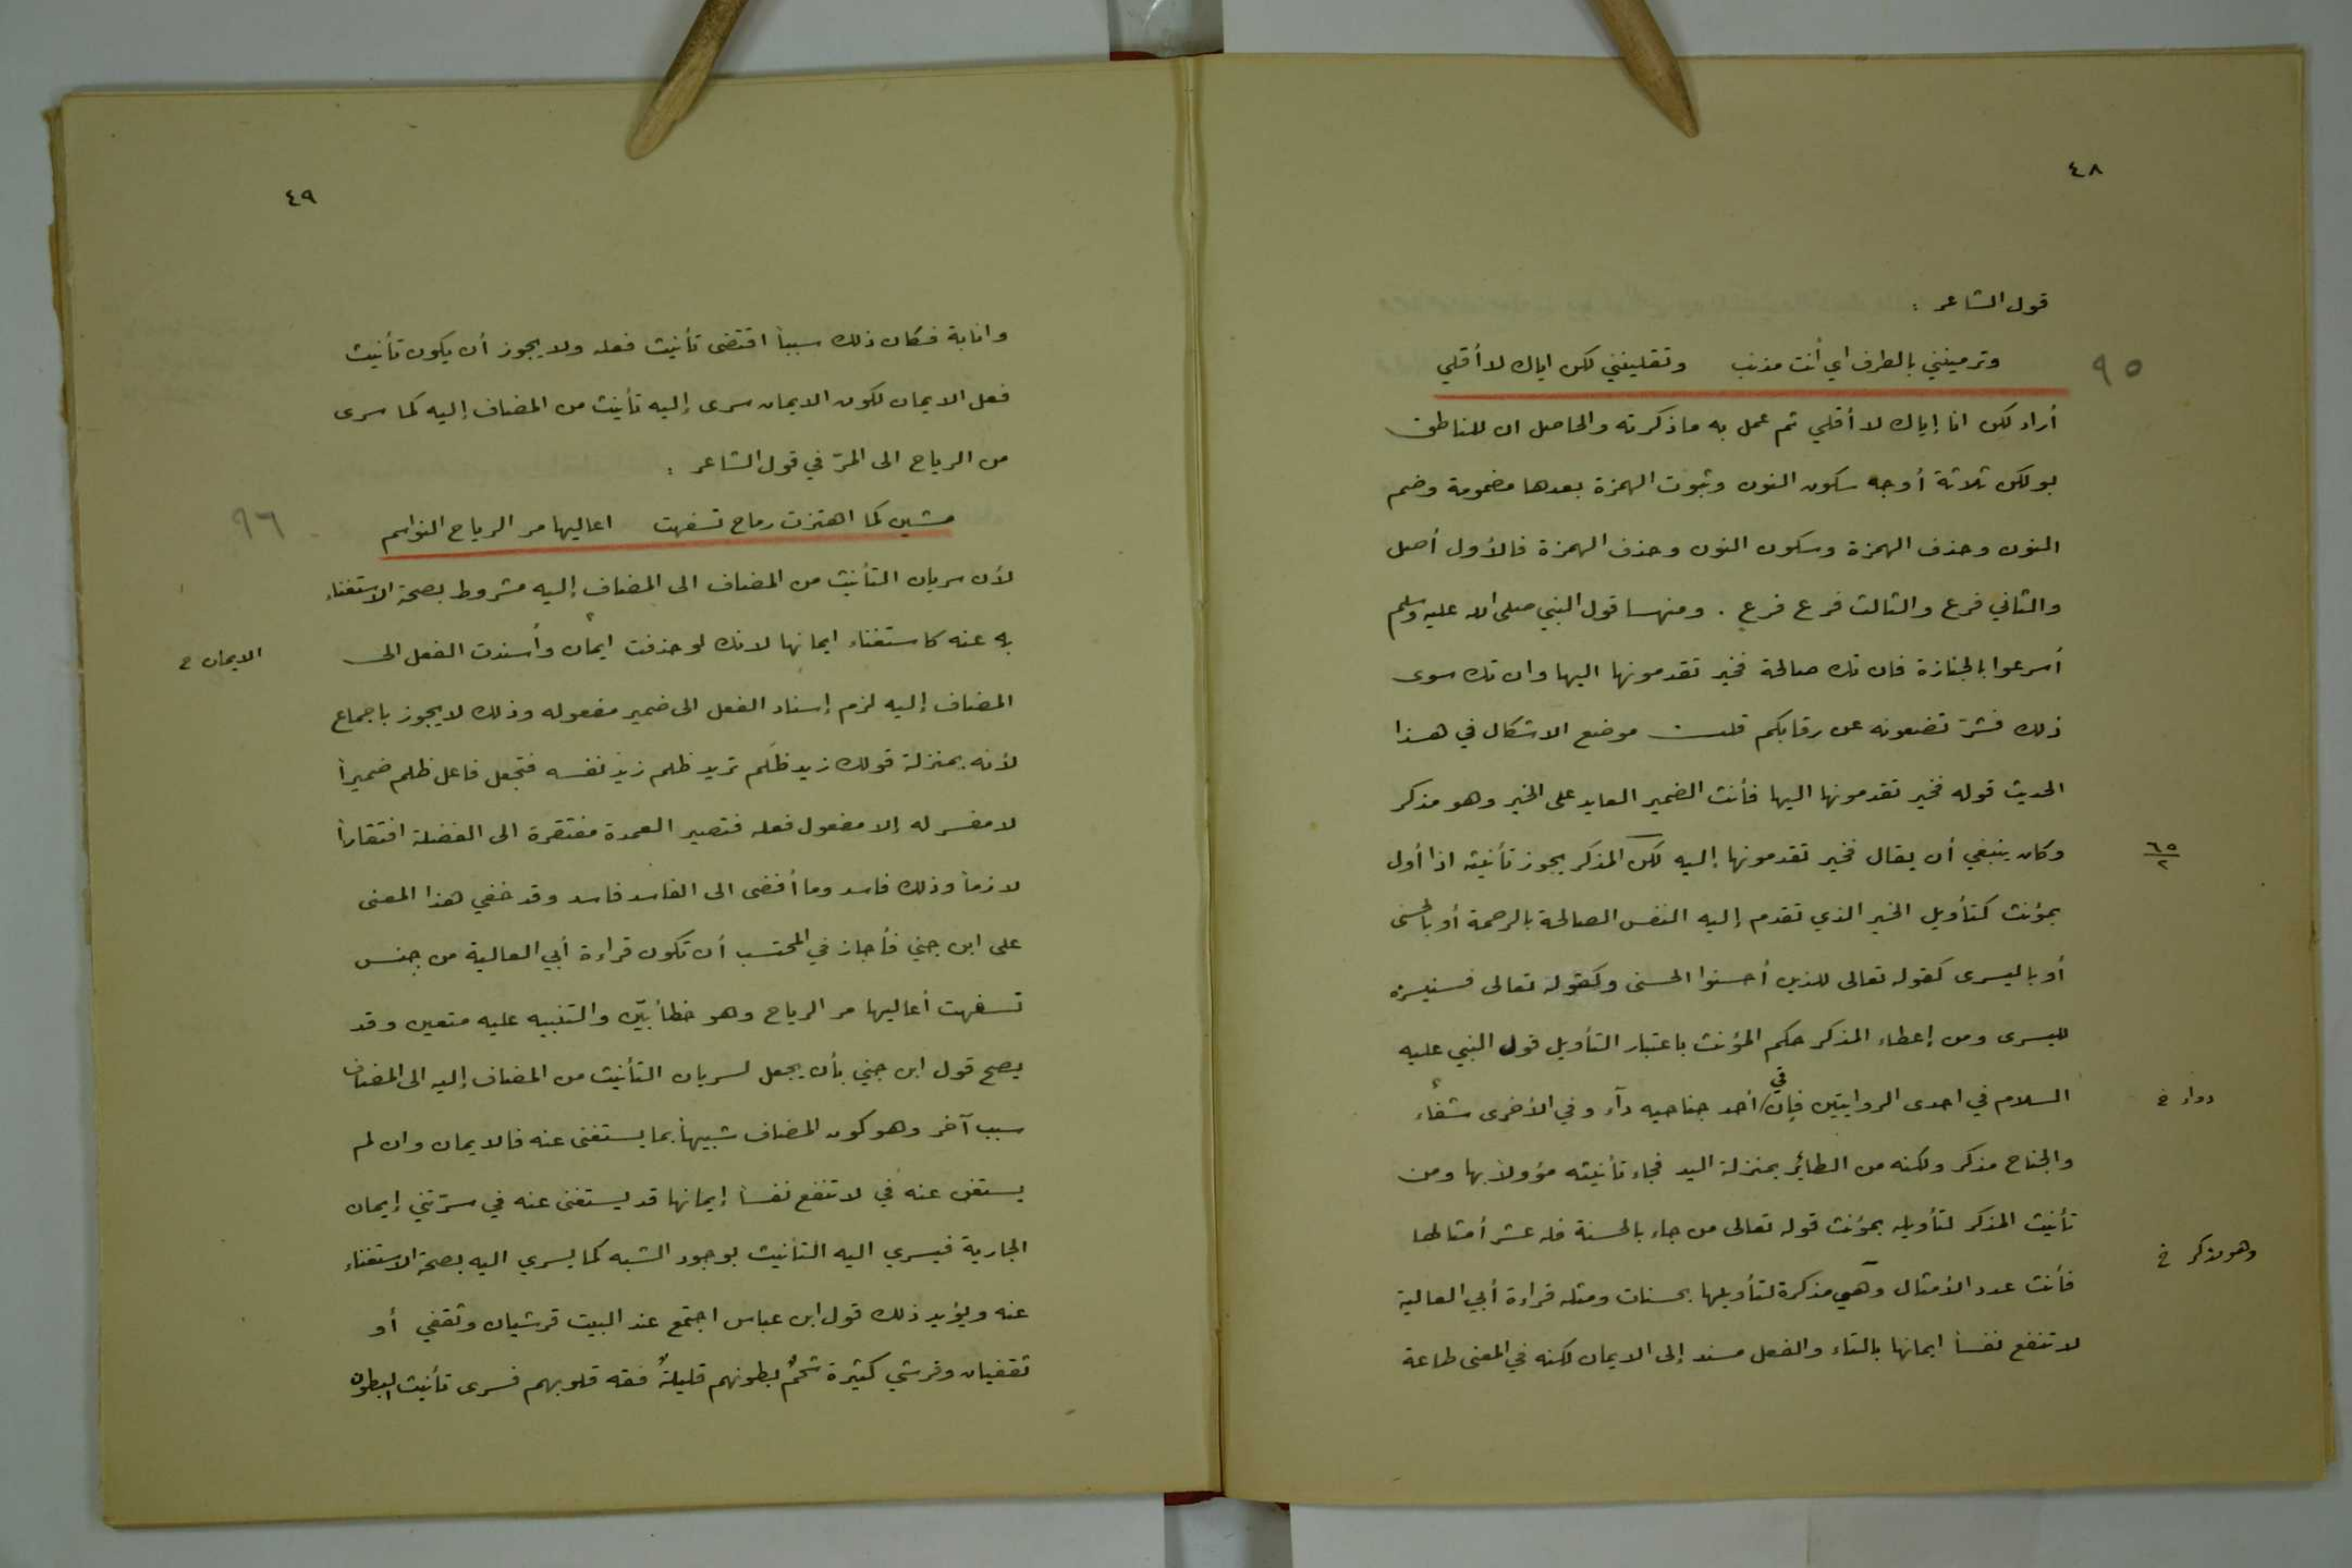 ٤٨
قول الشاعر :
وترمينني بالطرف اي أنت مذنب وتقلينني لكن اياك لا أقلي
٩٥
أراد لكن انا إياك لا أقلي ثم عمل به ما ذكرته والحاصل ان للناطق
بولكن ثلاثة أوجه سكون النون وثبوت الهمزة بعدها مضمومة وضم
النون وحذف الهمزة وسكون النون وحذف الهمزة فالأول أصل
والثاني فرع والثالث فرع فرع . ومنها قول النبي صلى الله عليه وسلم
أسرعوا بالجنازة فان تك صالحة فخير تقدمونها اليها وان تك سوى
ذلك فشرّ تضعونه عن رقابكم قلت موضع الاشكال في هذا
الحديث قوله فخير تقدمونها اليها فأنث الضمير العايد على الخير وهو مذكر
وكان ينبغي أن يقال فخير تقدمونها إليه لكن المذكر يجوز تأنيثه اذا أول
٦٥
٢
بمؤنث كتأويل الخير الذي تقدم إليه النفس الصالحة بالرحمة أو بالحسنى
أو باليسرى كقوله تعالى للذين أحسنوا الحسنى وكقوله تعالى فسنيسره
لليسرى ومن إعطاء المذكر حكم المؤنث باعتبار التأويل قول النبي عليه
السلام في احدى الروايتين فإن في أحد جناحيه دآء وفي الأخرى شفاء
دواء خ
والجناح مذكر ولكنه من الطائر بمنزلة اليد فجاء تأنيثه مؤولا بها ومن
تأنيث المذكر لتأويله بمؤنث قوله تعالى من جاء بالحسنة فله عشر أمثالها
فأنث عدد الأمثال وهي مذكرة لتأويلها بحسنات ومثله قراءة أبي العالية
وهو مذكر خ
لا تنفع نفسا ايمانها بالتاء والفعل مسند إلى الايمان لكنه في المعنى طاعة
٤٩
وانابة فكان ذلك سبباً اقتضى تأنيث فعله ولا يجوز أن يكون تأنيث
فعل الايمان لكون الايمان سرى إليه تأنيث من المضاف إليه كما سرى
من الرياح الى المرّ في قول الشاعر :
مشين كما اهتزت رماح تسفهت اعاليها مر الرياح النواسم
٩٦
لأن سريان التأنيث من المضاف الى المضاف إليه مشروط بصحة الاستغناء
به عنه كاستغناء ايمانها لانك لو حذفت ايمان وأسندت الفعل الى
الايمان خ
المضاف إليه لزم إسناد الفعل الى ضمير مفعوله وذلك لا يجوز باجماع
لأنه بمنزلة قولك زيد ظَلَم تريد ظلم زيد نفسه فتجعل فاعل ظلم ضميراً
لا مفسر له إلا مفعول فعله فتصير العمدة مفتقرة الى الفضلة افتقاراً
لازماً وذلك فاسد وما أفضى الى الفاسد فاسد وقد خفي هذا المعنى
على ابن جني فأجاز في المحتسب أن تكون قراءة أبي العالية من جنس
تسفهت أعاليها مر الرياح وهو خطأ بيّن والتنبيه عليه متعين وقد
يصح قول ابن جني بأن يجعل لسريان التأنيث من المضاف إليه الى المضاف
سبب آخر وهو كون المضاف شبيهاً بما يستغنى عنه فالايمان وان لم
يستغن عنه في لا تنفع نفساً إيمانها قد يستغنى عنه في سرّتني إيمان
الجارية فيسري اليه التأنيث بوجود الشبه كما يسري اليه بصحة الاستغناء
عنه ويؤيد ذلك قول ابن عباس اجتمع عند البيت قرشيان وثقفي أو
ثقفيان وقرشي كثيرة شحمُ بطونهم قليلةٌ فقه قلوبهم فسرى تأنيث البطون